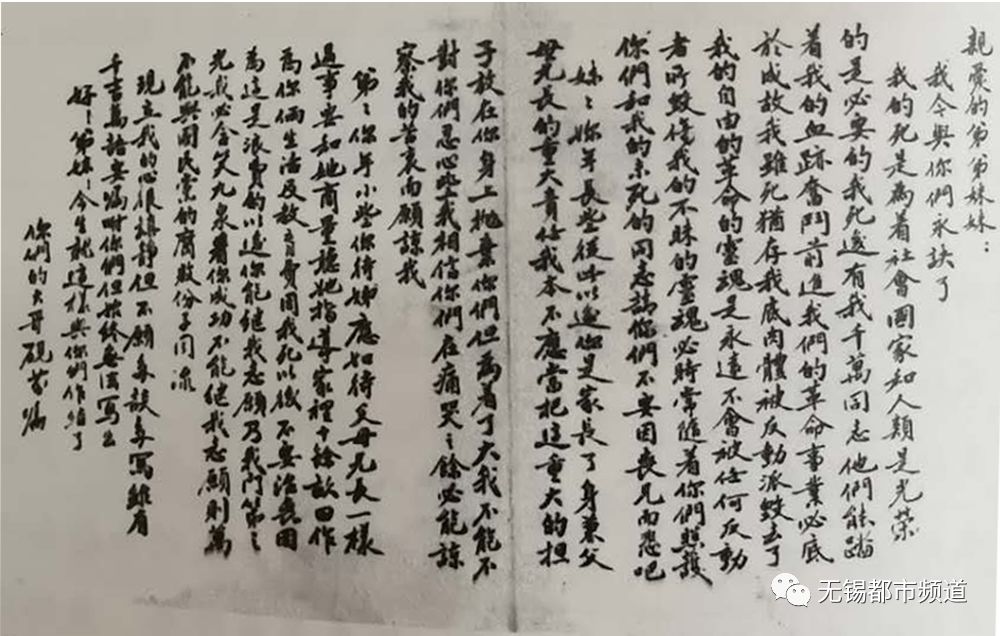 親愛的弟弟妹妹：
我今與你們永訣了
我的死是為着社會國家和人類是光榮
的是必要的我死後有我千萬同志他們能踏
着我的血跡奮鬥前進我們的革命事業必底
於成故我雖死猶存我底肉體被反動派毀去了
我的自由的革命的靈魂是永遠不會被任何反動
者所毀傷我的不昧的靈魂必時常隨着你們照護
你們和我的未死的同志請你們不要因喪兄而悲吧
妹妹你年長些從此以後你是家長了身兼父
母兄長的重大責任我本不應當把這重大的担
子放在你身上抛棄你們但為着了大我不能不
對你們忍心些我相信你們在痛哭之餘必能諒
察我的苦衷而願諒我
弟弟你年小些你待姊應如待父母兄長一樣
遇事要和她商量聽她指導家裡十餘畝田作
為你倆生活及教育費用我死以後不要治喪因
為這是浪費的以後你能繼我志願乃我門第之
光我必含笑九泉看你成功不能繼我志願則萬
不能與國民黨的腐敗份子同流
現在我的心很鎮靜但不願多談多寫雖有
千言萬語要囑咐你們但始終無法寫出
好！弟妹！今生就這樣與你們作結了
你們的大哥硯芬囑
无锡都市频道